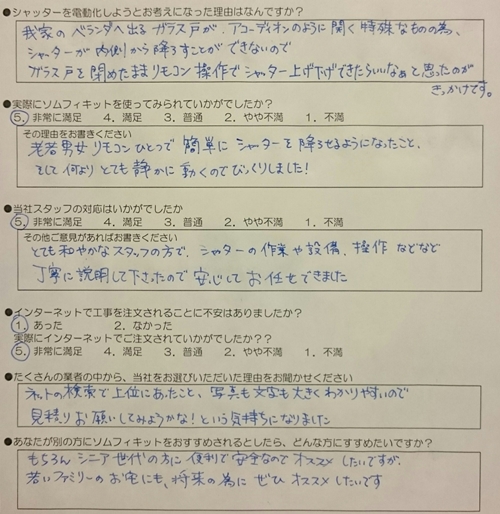 ●シャッターを電動化しようとお考えになった理由はなんですか?
我家のベランダへ出るガラス戸が、アコーディオンのように開く特殊なものの為、
シャッターが内側から降ろすことができないので
ガラス戸を閉めたままリモコン操作でシャッター上げ下げできたらいいなぁと思ったのが
きっかけです。
●実際にソムフィキットを使ってみられていかがでしたか?
5. 非常に満足 4. 満足 3. 普通 2. やや不満 1. 不満
その理由をお書きください
老若男女リモコンひとつで簡単にシャッターを降ろせるようになったこと、
そして何よりとても静かに動くのでびっくりしました!
●当社スタッフの対応はいかがでしたか
5. 非常に満足 4. 満足 3. 普通 2. やや不満 1. 不満
その他ご意見があればお書きください
とても和やかなスタッフの方で、シャッターの作業や設備、操作などなど
丁寧に説明して下さったので安心してお任せできました
●インターネットで工事を注文されることに不安はありましたか?
1. あった 2. なかった
実際にインターネットでご注文されていかがでしたか??
5. 非常に満足 4. 満足 3. 普通 2. やや不満 1. 不満
●たくさんの業者の中から、当社をお選びいただいた理由をお聞かせください
ネットの検索で上位にあったこと、写真も文字も大きくわかりやすいので
見積りお願いしてみようかな!という気持ちになりました
●あなたが別の方にソムフィキットをおすすめされるとしたら、どんな方にすすめたいですか?
もちろんシニア世代の方に便利で安全なのでオススメしたいですが、
若いファミリーのお宅にも、将来の為にぜひオススメしたいです